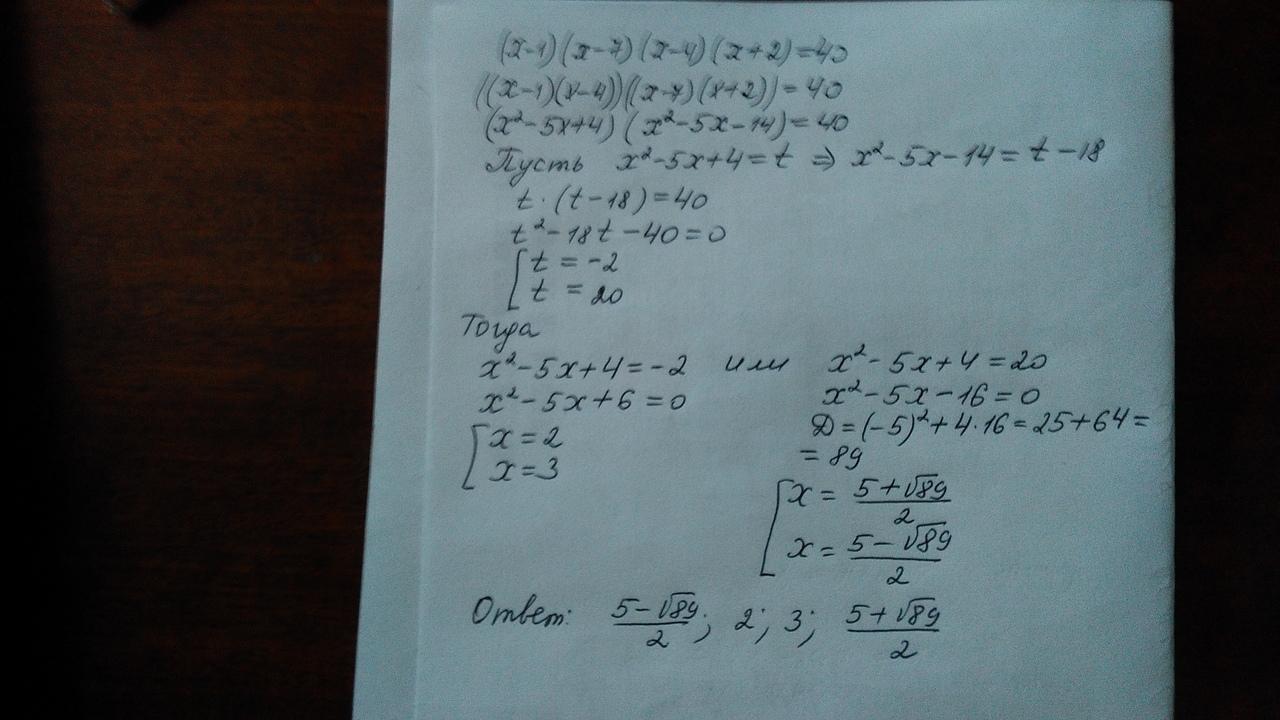 (x-1)(x-7)(x-4)(x+2)=40
((x-1)(x-4))((x-7)(x+2))=40
(x²-5x+4)(x²-5x-14)=40
Пусть x²-5x+4=t ⇒ x²-5x-14=t-18
t·(t-18)=40
t²-18t-40=0
[t=-2
t=20
Тогда
x²-5x+4=-2 или x²-5x+4=20
x²-5x+6=0 x²-5x-16=0
[x=2 Д=(-5)²+4·16=25+64=
x=3 =89
[x=(5+√89)/2
x=(5-√89)/2
Ответ: (5-√89)/2; 2; 3; (5+√89)/2